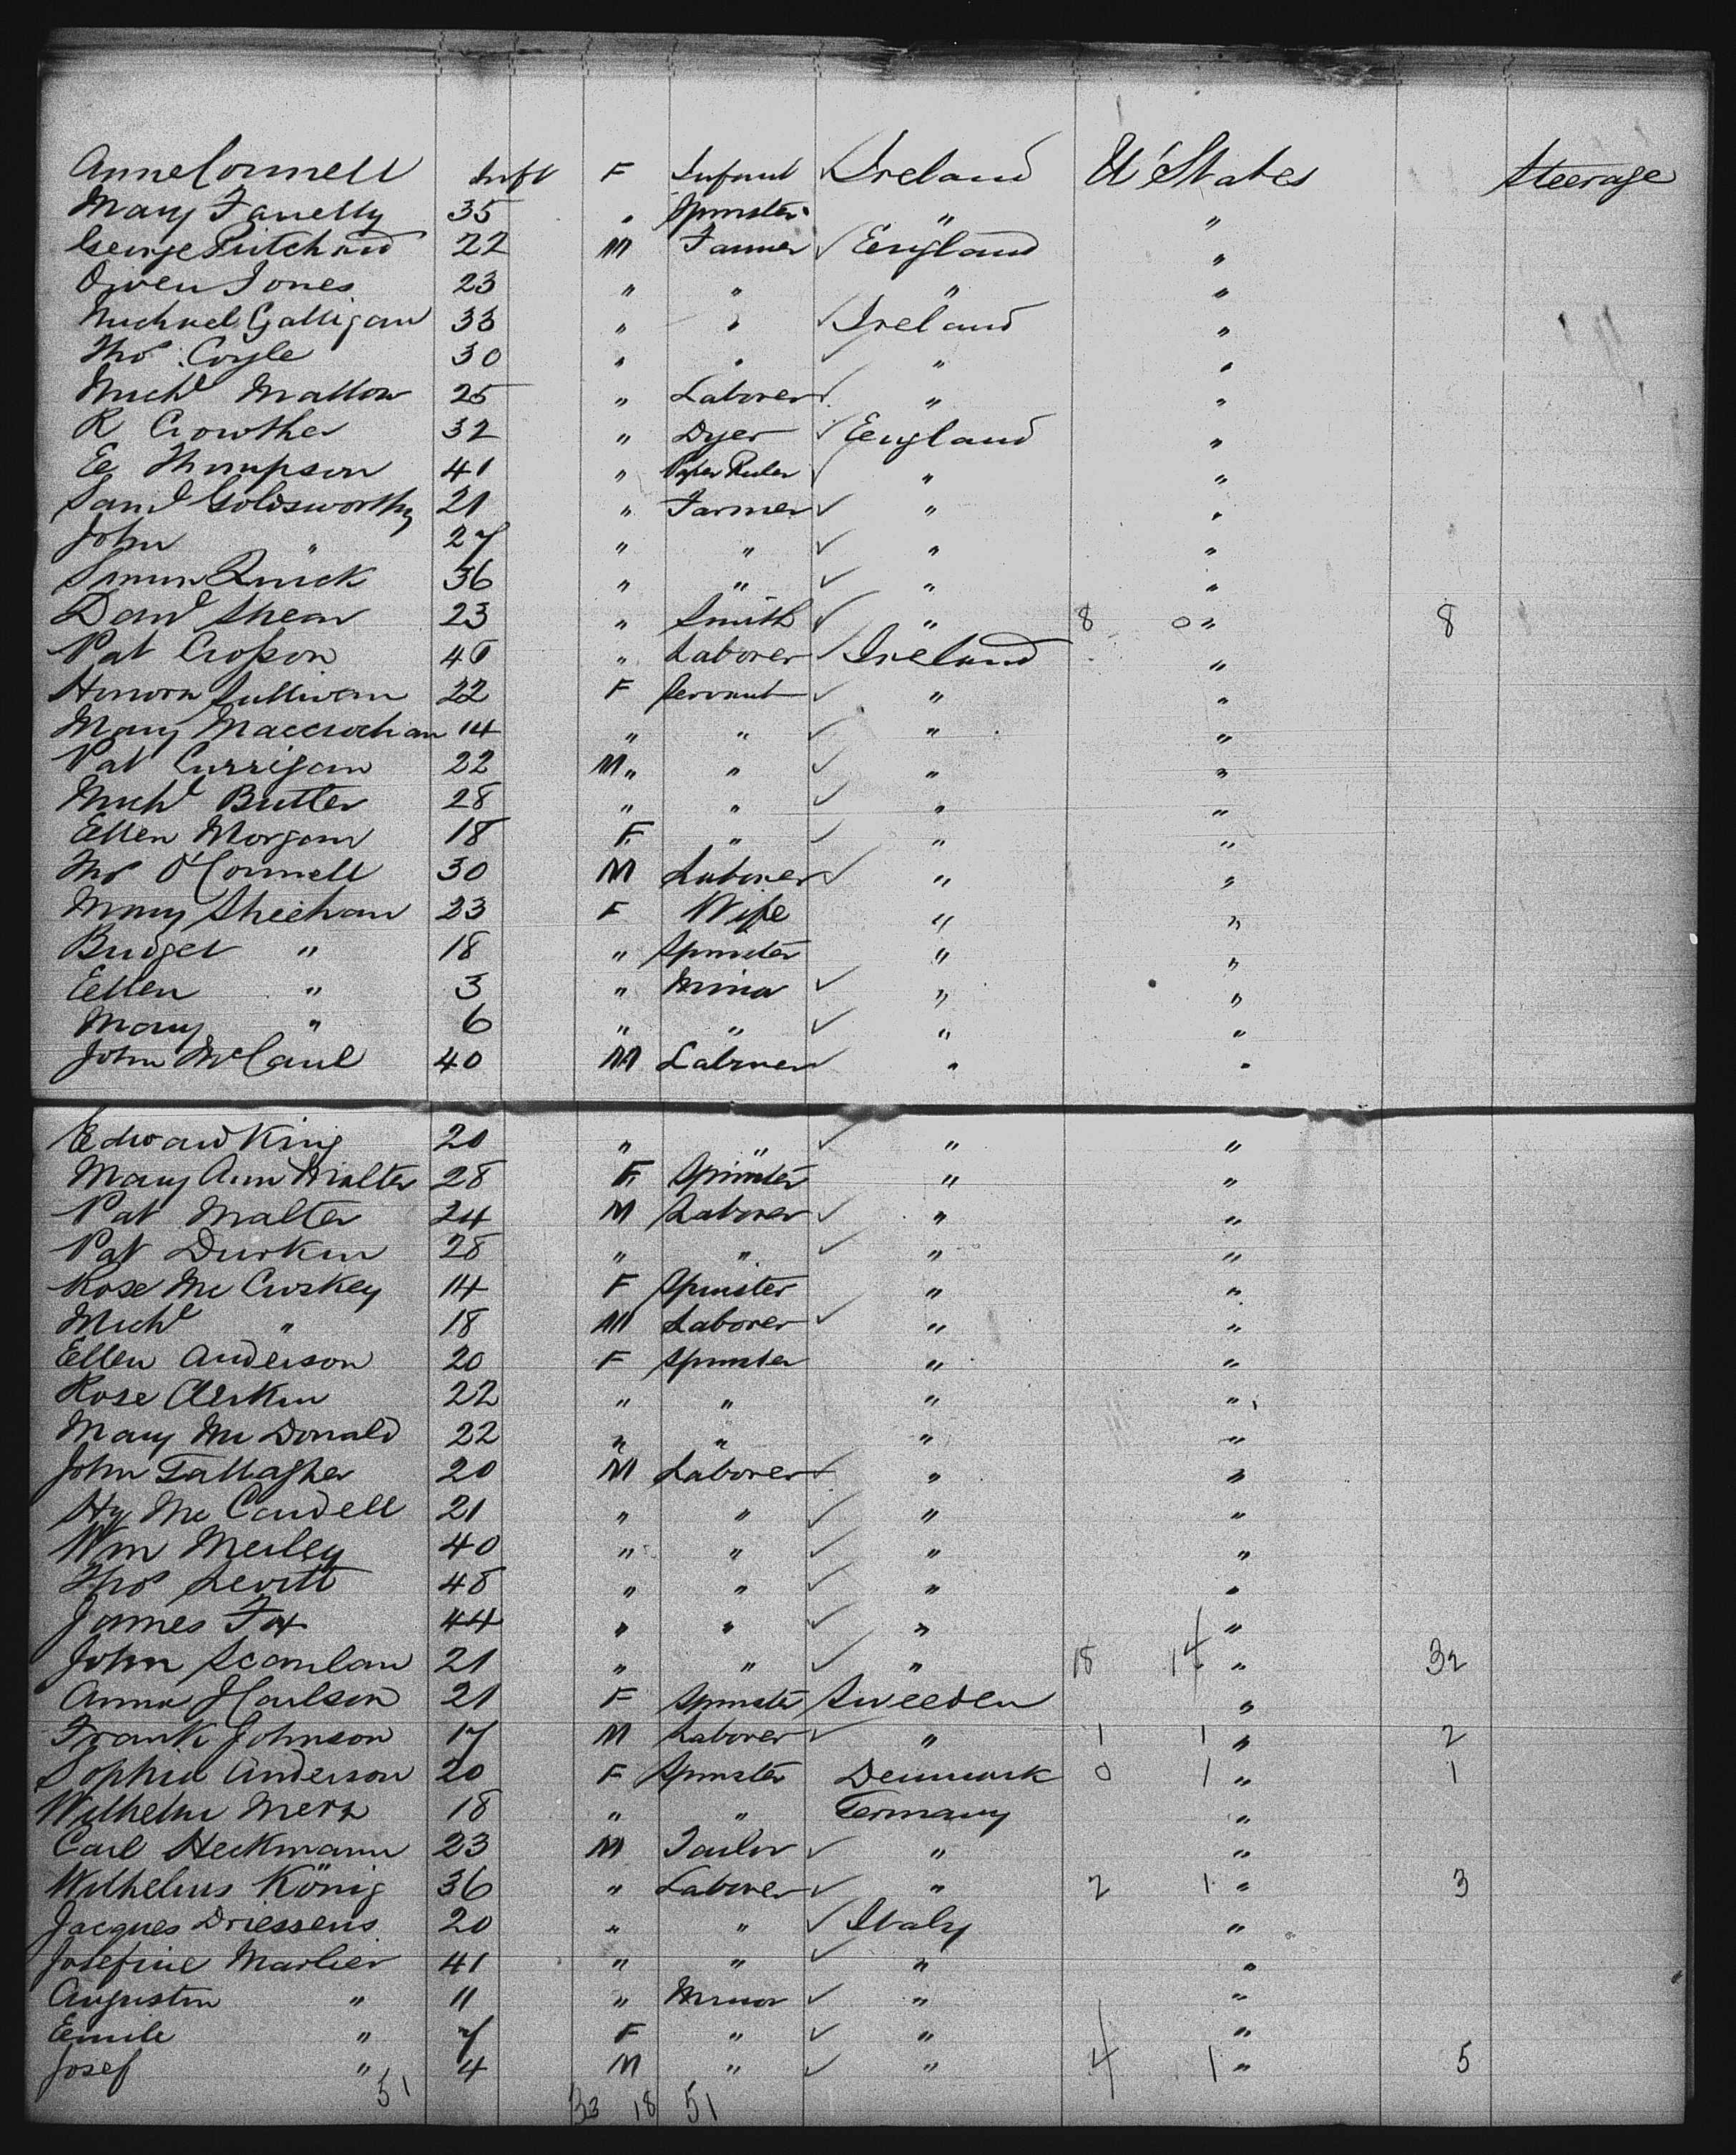 Anne Connell Inft F Infant Ireland U States Steerage
Mary Fanelly 35 " Spinster " "
George Pritchard 22 M Farmer England "
Owen Jones 23 " " " "
Michael Galligan 33 " " Ireland "
Thos Coyle 30 " " " "
Michl Mallow 25 " Laborer " "
R Crowther 32 " Dyer England "
E Thompson 41 " Paper Ruler " "
Saml Goldsworthy 21 " Farmer " "
John " 27 " " " "
Simon Quick 36 " " " "
Danl Shear 23 " Smith " 8 0 " 8
Pat Crosson 40 " Laborer Ireland "
Honora Sullivan 22 F Servant " "
Mary Maccrochan 14 " " " "
Pat Currigan 22 M " " " "
Michl Butler 28 " " " "
Ellen Morgan 18 F " " "
Thos O'Connell 30 M Laborer " "
Mary Sheehan 23 F Wife " "
Bridget " 18 " Spinster " "
Ellen " 3 " Minor " "
Mary " 6 " " " "
John McCaul 40 M Laborer " "
Edward King 20 " " " "
Mary Ann Malter 28 F Spinster " "
Pat Malter 24 M Laborer " "
Pat Durkin 28 " " " "
Rose Mc Cuskey 14 F Spinster " "
Michl " 18 M Laborer " "
Ellen Anderson 20 F Spinster " "
Rose Clerkin 22 " " " "
Mary Mc Donald 22 " " " "
John Gallagher 20 M Laborer " "
Hy Mc Cardell 21 " " " "
Wm Merley 40 " " " "
Thos Levitt 48 " " " "
James Fox 44 " " " "
John Scanlan 21 " " " 18 14 " 32
Anna Carlson 21 F Spinster Sweeden "
Frank Johnson 17 M Laborer " 1 1 " 2
Sophia Anderson 20 F Spinster Denmark 0 1 " 1
Wilhelm Merz 18 " " Germany "
Carl Heckmann 23 M Tailor " "
Wilhelms König 36 " Laborer " 2 1 " 3
Jacques Driessens 20 " " Italy "
Josefine Marlier 41 " " " "
Augustin " 11 " Minor " "
Emile " 7 F " " "
Josef " 4 M " " 4 1 " 5
51 33 18 51